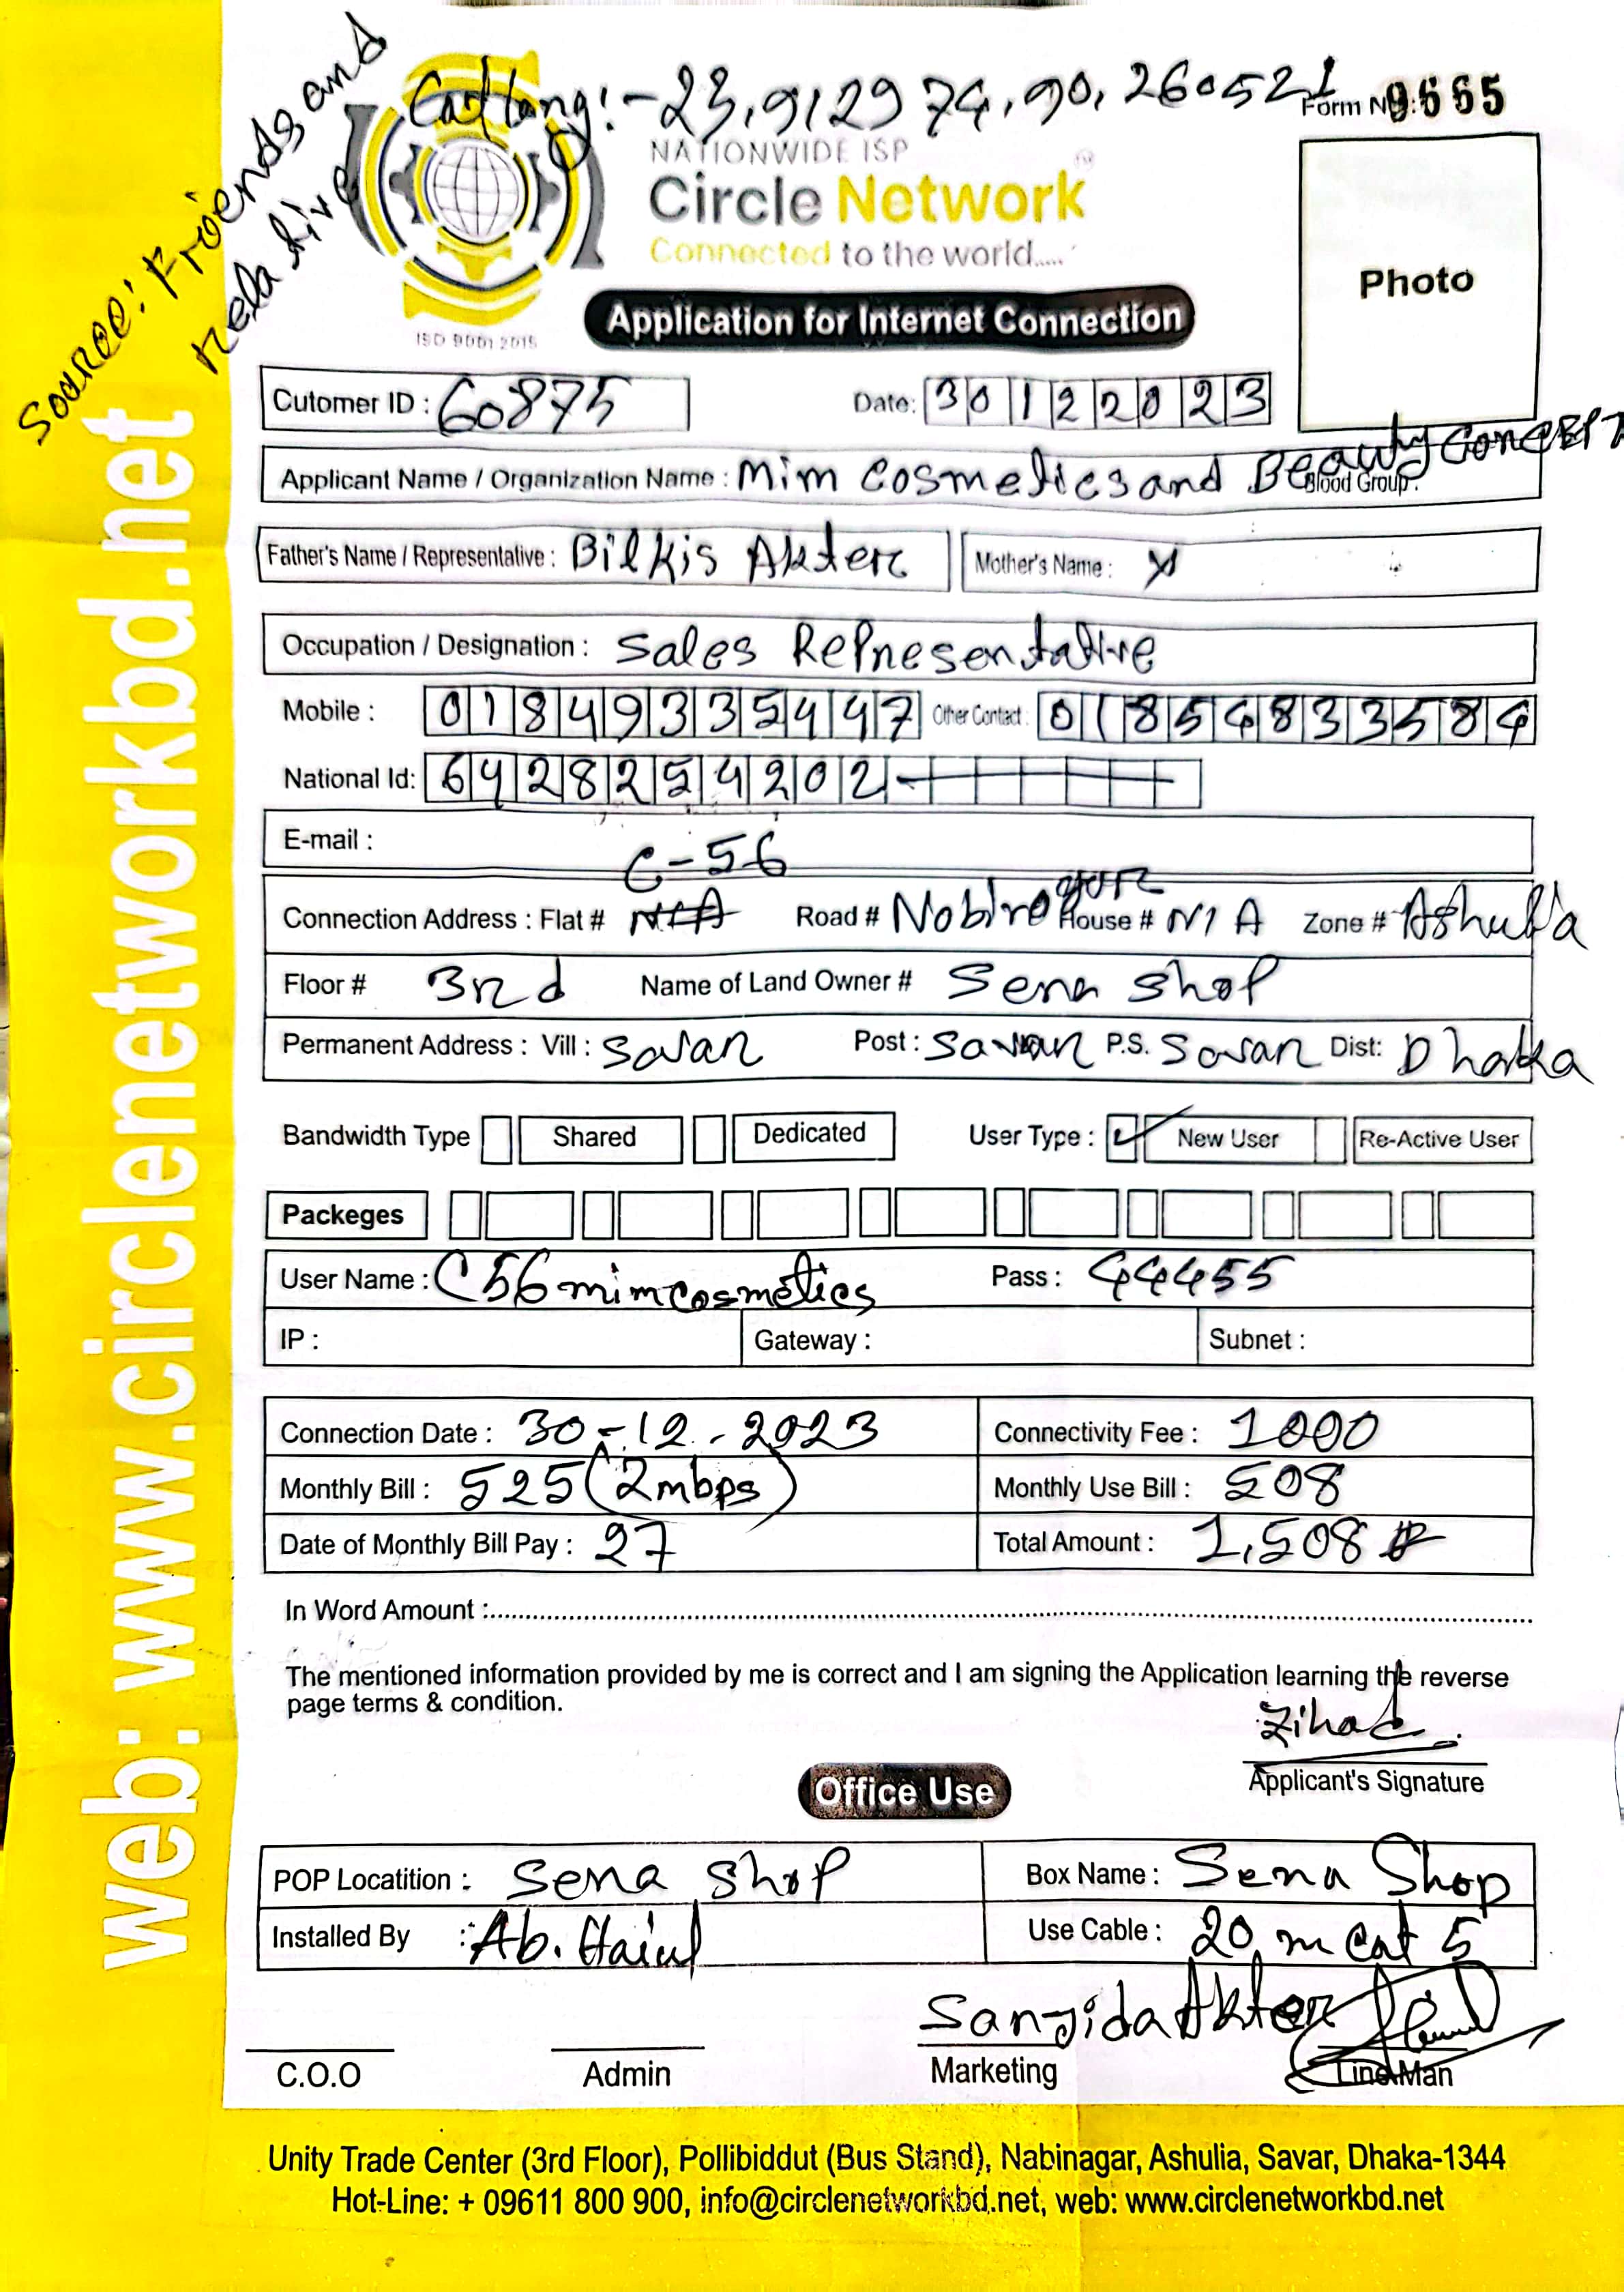 Source: Friends and
Relative
Cat/long:-23.912974,90.260521
Form No: 9665
NATIONWIDE ISP
Circle Network
Connected to the world.....
ISO 9001 2015
Photo
Application for Internet Connection
Cutomer ID : 60875 Date: 30122023
Applicant Name / Organization Name : Mim Cosmetics and Beauty Concept
Blood Group :
Father's Name / Representative : Bilkis Akter Mother's Name : X
Occupation / Designation : Sales Representative
Mobile : 01849335447 Other Contact : 01854833584
National Id: 6428254202
E-mail :
C-56
Connection Address : Flat # N/A Road # Nobinogor House # N/A Zone # Ashulia
Floor # 3rd Name of Land Owner # Sena Shop
Permanent Address : Vill : Savar Post : Savar P.S. Savar Dist: Dhaka
Bandwidth Type Shared Dedicated User Type : New User Re-Active User
Packeges
User Name : C56mimcosmetics Pass : 44455
IP : Gateway : Subnet :
Connection Date : 30-12-2023 Connectivity Fee : 1000
Monthly Bill : 525 (2mbps) Monthly Use Bill : 508
Date of Monthly Bill Pay : 27 Total Amount : 1,508
In Word Amount :
The mentioned information provided by me is correct and I am signing the Application learning the reverse
page terms & condition.
Zihad
Applicant's Signature
Office Use
POP Locatition : Sena Shop Box Name : Sena Shop
Installed By : Ab. Use Cable : 20 m cat 5
Sanjida Akter
C.O.O Admin Marketing Line Man
Unity Trade Center (3rd Floor), Pollibiddut (Bus Stand), Nabinagar, Ashulia, Savar, Dhaka-1344
Hot-Line: + 09611 800 900, info@circlenetworkbd.net, web: www.circlenetworkbd.net
web: www.circlenetworkbd.net